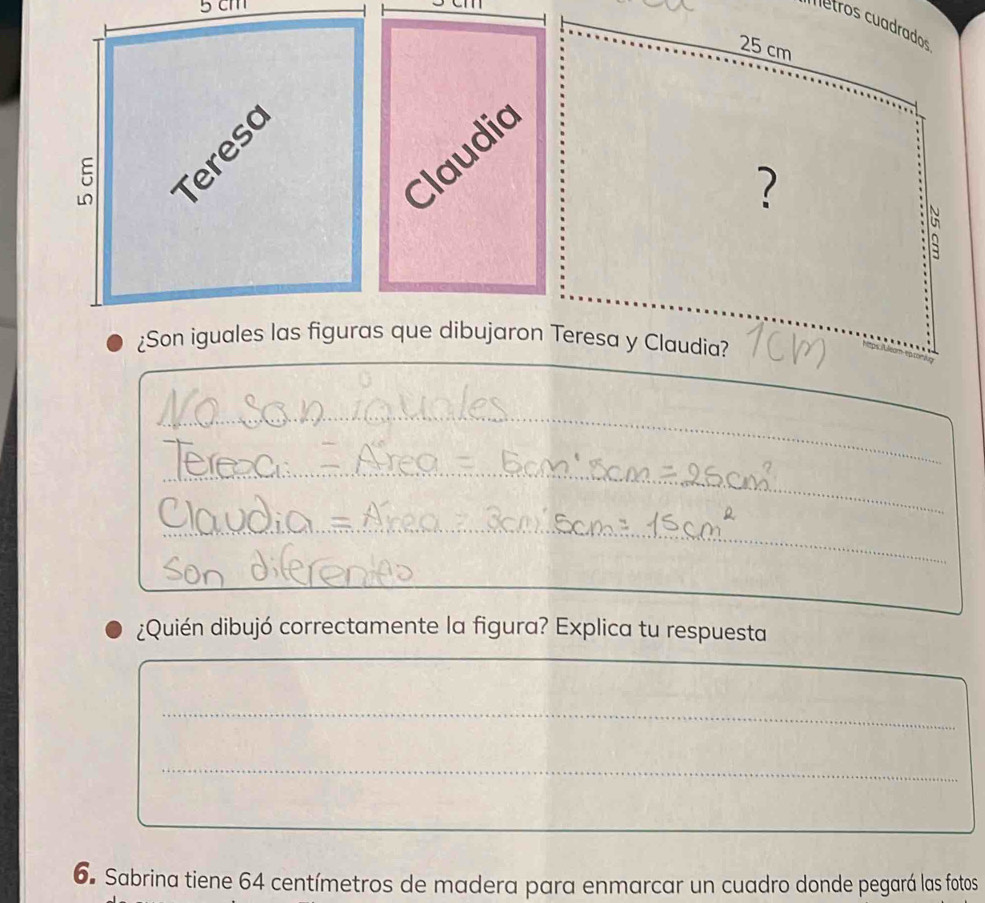 5 cm
cm
metros cuadrados.
25 cm
5 cm
Teresa
Claudia
?
25 cm
¿Son iguales las figuras que dibujaron Teresa y Claudia?
1cm
No son iguales
Teresa = Área = 5cm · 5cm = 25cm²
Claudia = Área = 3cm · 5cm = 15cm²
son diferentes
¿Quién dibujó correctamente la figura? Explica tu respuesta
6. Sabrina tiene 64 centímetros de madera para enmarcar un cuadro donde pegará las fotos